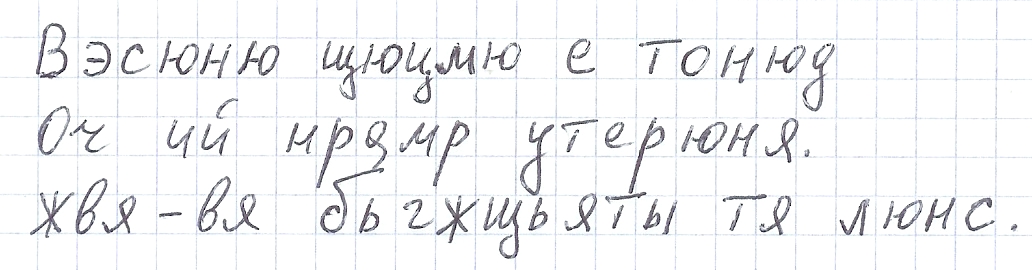 Вэсюню щюцмю е тонюд
Оч ий нрямр утерюня.
Жвя-вя бьгжщьяты тя люнс.